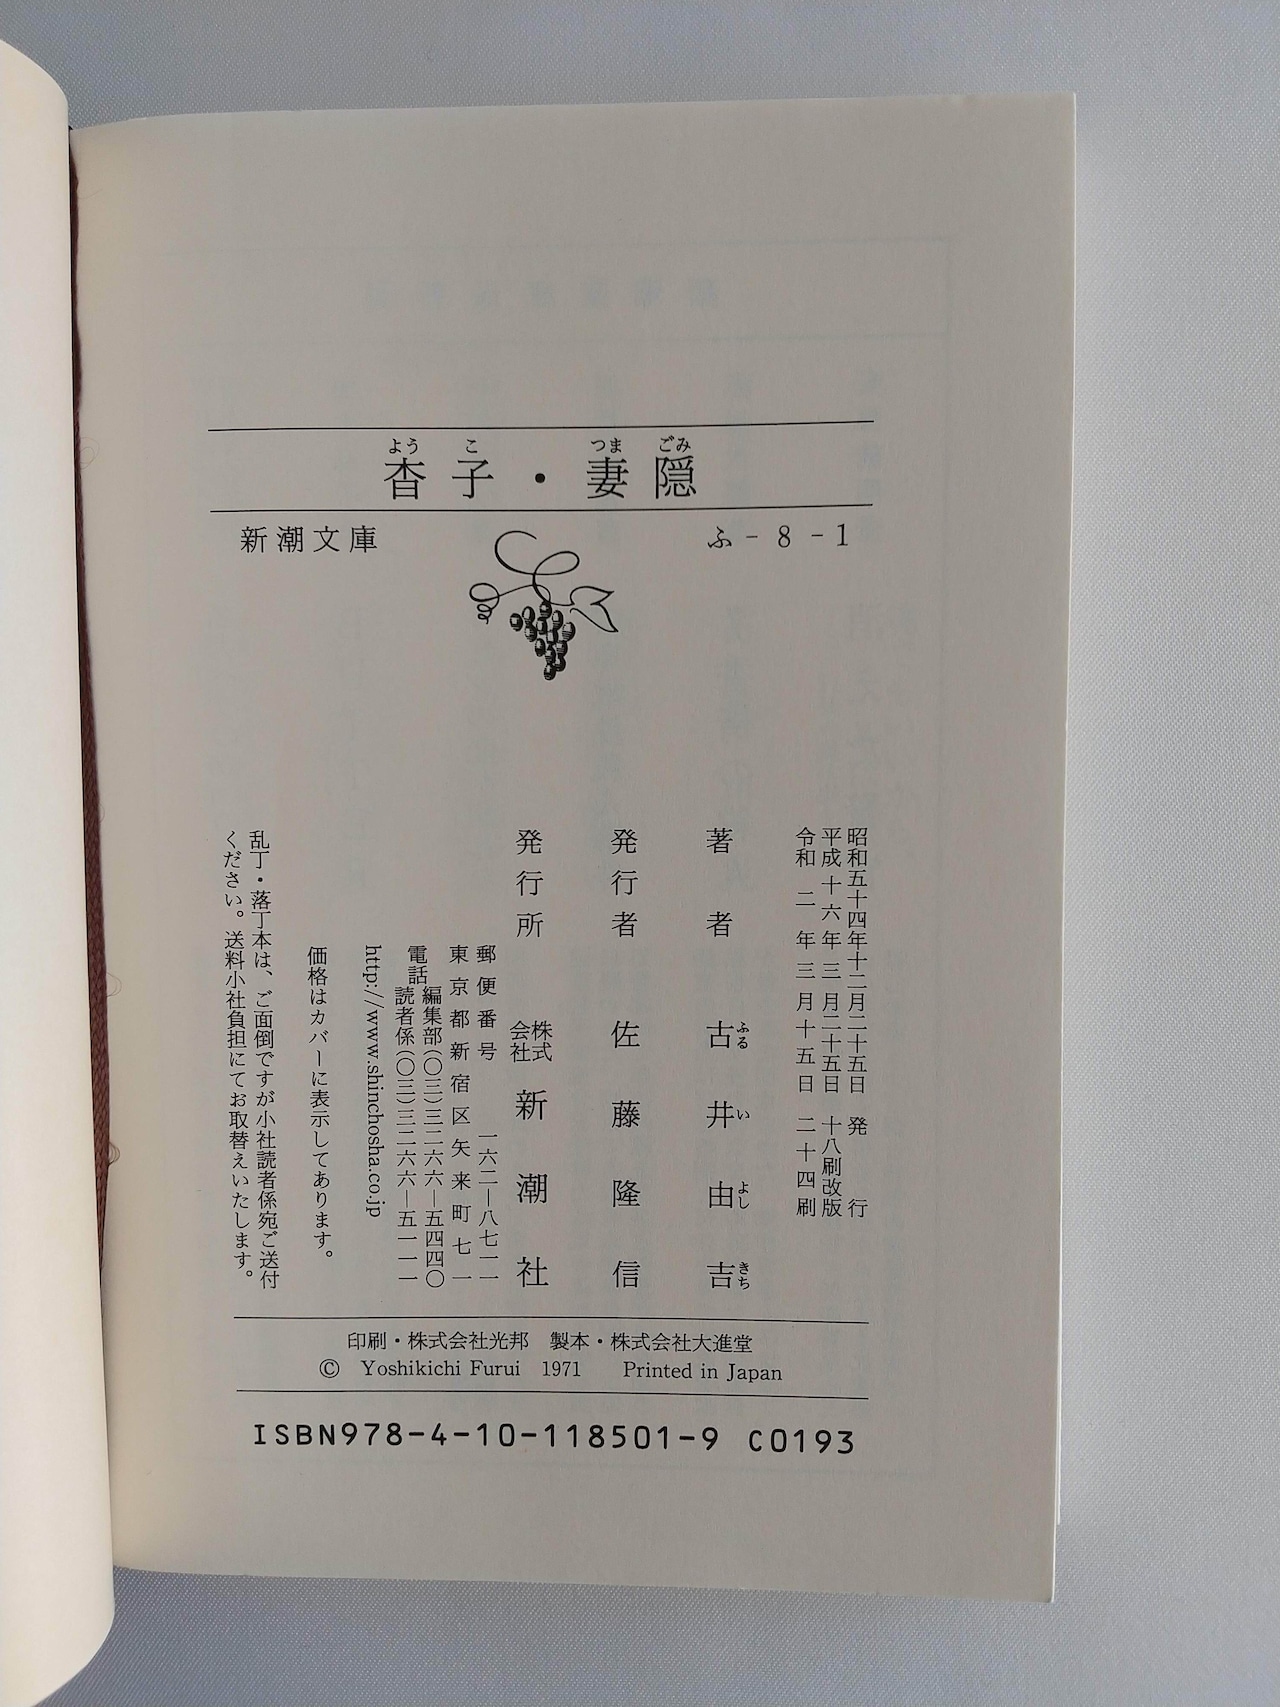 杳子・妻隠
ようこ つまごみ
新潮文庫 ふ-8-1
昭和五十四年十二月二十五日 発行
平成十六年三月二十五日 十八刷改版
令和二年三月十五日 二十四刷
著者 古井由吉
ふるいよしきち
発行者 佐藤隆信
発行所 株式会社 新潮社
郵便番号 一六二―八七一一
東京都新宿区矢来町七一
電話 編集部(〇三)三二六六―五四四〇
読者係(〇三)三二六六―五一一一
http://www.shinchosha.co.jp
価格はカバーに表示してあります。
乱丁・落丁本は、ご面倒ですが小社読者係宛ご送付
ください。送料小社負担にてお取替えいたします。
印刷・株式会社光邦 製本・株式会社大進堂
© Yoshikichi Furui 1971 Printed in Japan
ISBN978-4-10-118501-9 C0193